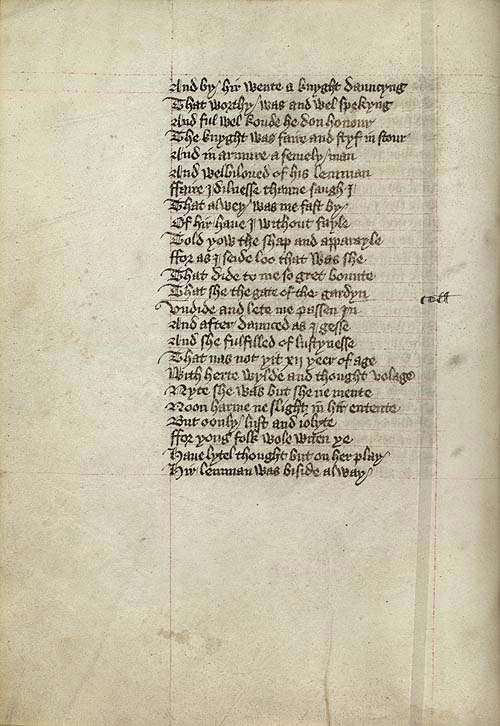 And by hir wente a knyght dauncyng
That worthy was and wel spekyng
And ful wel koude he don honour
The knyght was faire and styf in stour
And in armure a semely man
And welbiloued of his lemman
ffaire Idilnesse thanne saugh I
That alwey was me fast by
Of hir haue I without fayle
Told yow the shap and apparayle
ffor as I seide loo that was she
That dide to me so gret bounte
That she the gate of the gardyn
Undide and lete me passen in
And after daunced as I gesse
And she fulfilled of lustynesse
That nas not yit xii yeer of age
With herte wylde and thought volage
Nyce she was but she ne mente
Noon harme ne slight in hir entente
But oonly lust and iolyte
ffor yong folk wole witen ye
Haue lytel thought but on her play
Hir lemman was biside alway